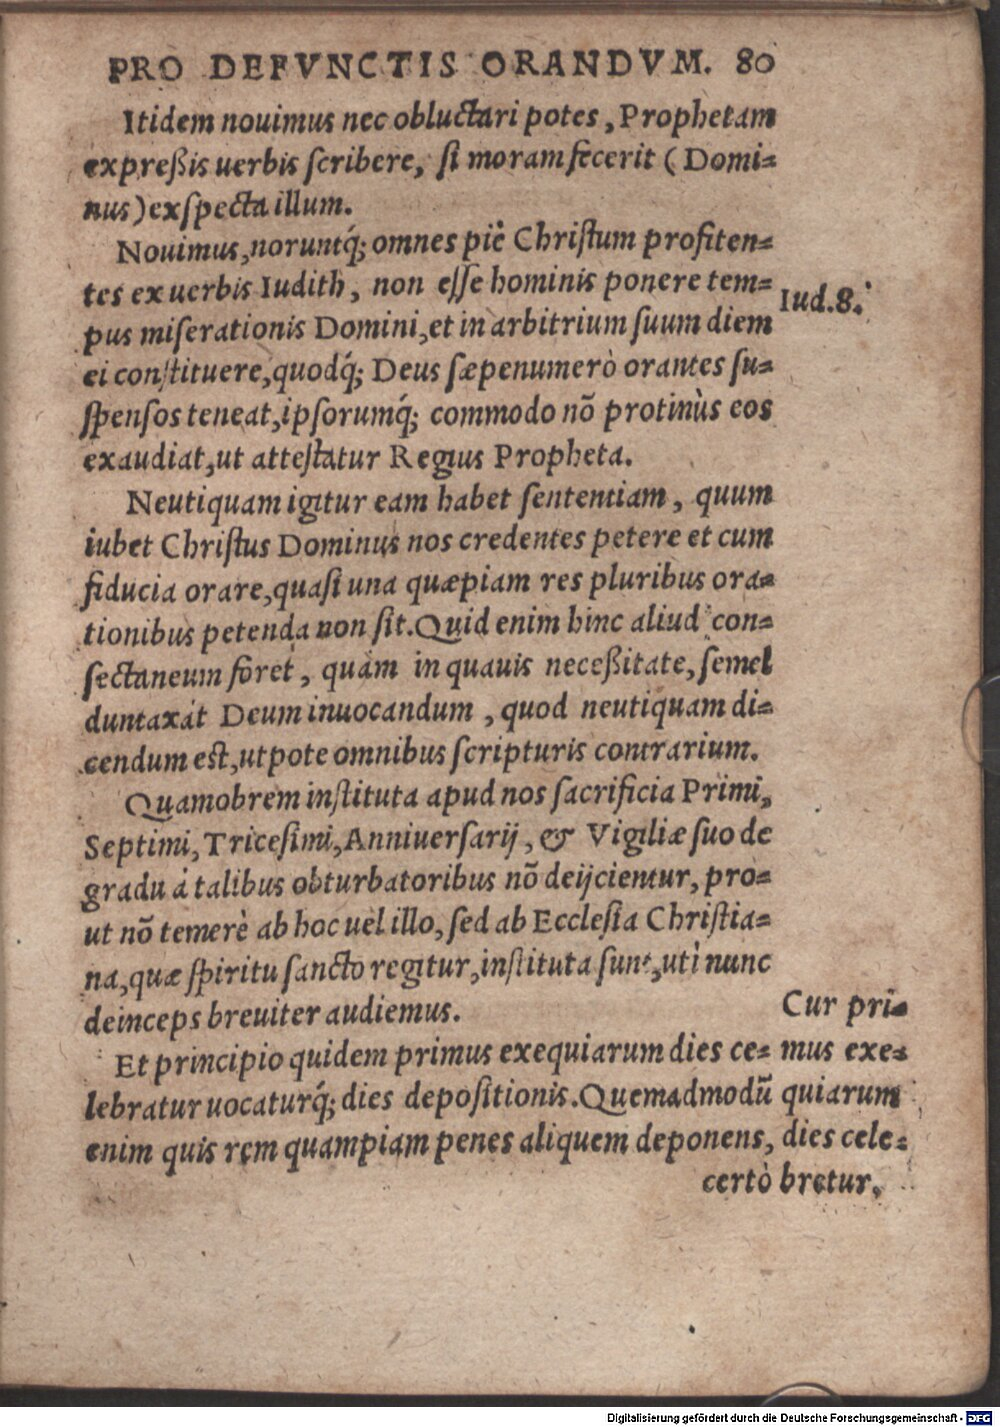 PRO DEFVNCTIS ORANDVM. 80
Itidem nouimus nec obluctari potes, Prophetam
expreßis uerbis ſcribere, ſi moram fecerit (Domi=
nus) exſpecta illum.
Nouimus, noruntq́; omnes piè Chriſtum profiten=
tes ex uerbis Iudith, non eſſe hominis ponere tem=
Iud.8.
pus miſerationis Domini, et in arbitrium ſuum diem
ei conſtituere, quodq́; Deus ſæpenumerò orantes ſu=
ſpenſos teneat, ipſorumq́; commodo nõ protinùs eos
exaudiat, ut atteſtatur Regius Propheta.
Neutiquam igitur eam habet ſententiam, quum
iubet Chriſtus Dominus nos credentes petere et cum
fiducia orare, quaſi una quæpiam res pluribus ora=
tionibus petenda non ſit. Quid enim hinc aliud con=
ſectaneum foret, quàm in quauis neceßitate, ſemel
duntaxat Deum inuocandum, quod neutiquam di=
cendum eſt, utpote omnibus ſcripturis contrarium.
Quamobrem inſtituta apud nos ſacrificia Primi,
Septimi, Triceſimi, Anniuerſarij, & Vigiliæ ſuo de
gradu à talibus obturbatoribus nõ deijcientur, pro=
ut nõ temerè ab hoc uel illo, ſed ab Eccleſia Chriſtia=
na, quæ ſpiritu ſancto regitur, inſtituta ſunt, uti nunc
deinceps breuiter audiemus.
Et principio quidem primus exequiarum dies ce=
lebratur uocaturq́; dies depoſitionis. Quemadmodũ
enim quis rem quampiam penes aliquem deponens,
certò
Cur pri=
mus exe=
quiarum
dies cele=
bretur.
Digitalisierung gefördert durch die Deutsche Forschungsgemeinschaft - DFG